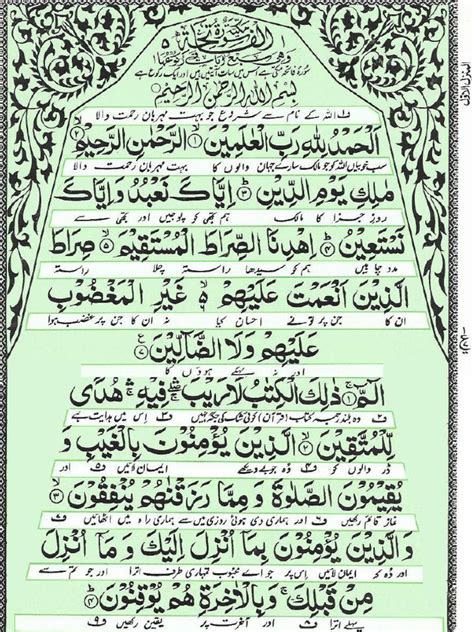 سورۂ فاتحہ مکی ہے اس میں سات آیتیں ہیں اور ایک رکوع ہے
بِسْمِ اللهِ الرَّحْمٰنِ الرَّحِيْمِ
اللہ کے نام سے شروع جو بہت مہربان رحمت والا
اَلْحَمْدُ لِلّٰهِ رَبِّ الْعٰلَمِيْنَ ۱ الرَّحْمٰنِ الرَّحِيْمِ ۲
سب خوبیاں اللہ کو جو مالک سارے جہان والوں کا بہت مہربان رحمت والا
مٰلِكِ يَوْمِ الدِّيْنِ ۳ اِيَّاكَ نَعْبُدُ وَاِيَّاكَ
روز جزا کا مالک ہم تجھی کو پوجیں اور تجھی سے
نَسْتَعِيْنُ ۴ اِهْدِنَا الصِّرَاطَ الْمُسْتَقِيْمَ ۵ صِرَاطَ
مدد چاہیں ہم کو سیدھا راستہ چلا راستہ
الَّذِيْنَ اَنْعَمْتَ عَلَيْهِمْ ۵ غَيْرِ الْمَغْضُوْبِ
ان کا جن پر تو نے احسان کیا نہ ان کا جن پر غضب ہوا
عَلَيْهِمْ وَلَا الضَّآلِّيْنَ ۷
اور نہ بہکے ہوؤں کا
الٓمّٓ ۱ ذٰلِكَ الْكِتٰبُ لَا رَيْبَ فِيْهِ هُدًى
ف وہ بلند رتبہ کتاب (قرآن) کوئی شک کی جگہ نہیں ف اس میں ہدایت ہے
لِّلْمُتَّقِيْنَ ۲ الَّذِيْنَ يُؤْمِنُوْنَ بِالْغَيْبِ وَ
ڈر والوں کو ف وہ جو بے دیکھے ایمان لائیں ف اور
يُقِيْمُوْنَ الصَّلٰوةَ وَ مِمَّا رَزَقْنٰهُمْ يُنْفِقُوْنَ ۳
نماز قائم رکھیں ف اور ہماری دی ہوئی روزی میں سے ہماری راہ میں اٹھائیں ف
وَالَّذِيْنَ يُؤْمِنُوْنَ بِمَآ اُنْزِلَ اِلَيْكَ وَ مَآ اُنْزِلَ
اور وہ کہ ایمان لائیں اس پر جو اے محبوب تمہاری طرف اترا اور جو تم سے
مِنْ قَبْلِكَ وَ بِالْاٰخِرَةِ هُمْ يُوْقِنُوْنَ ۴
پہلے اترا ف۸ اور آخرت پر یقین رکھیں ف۹
المنزل الاول